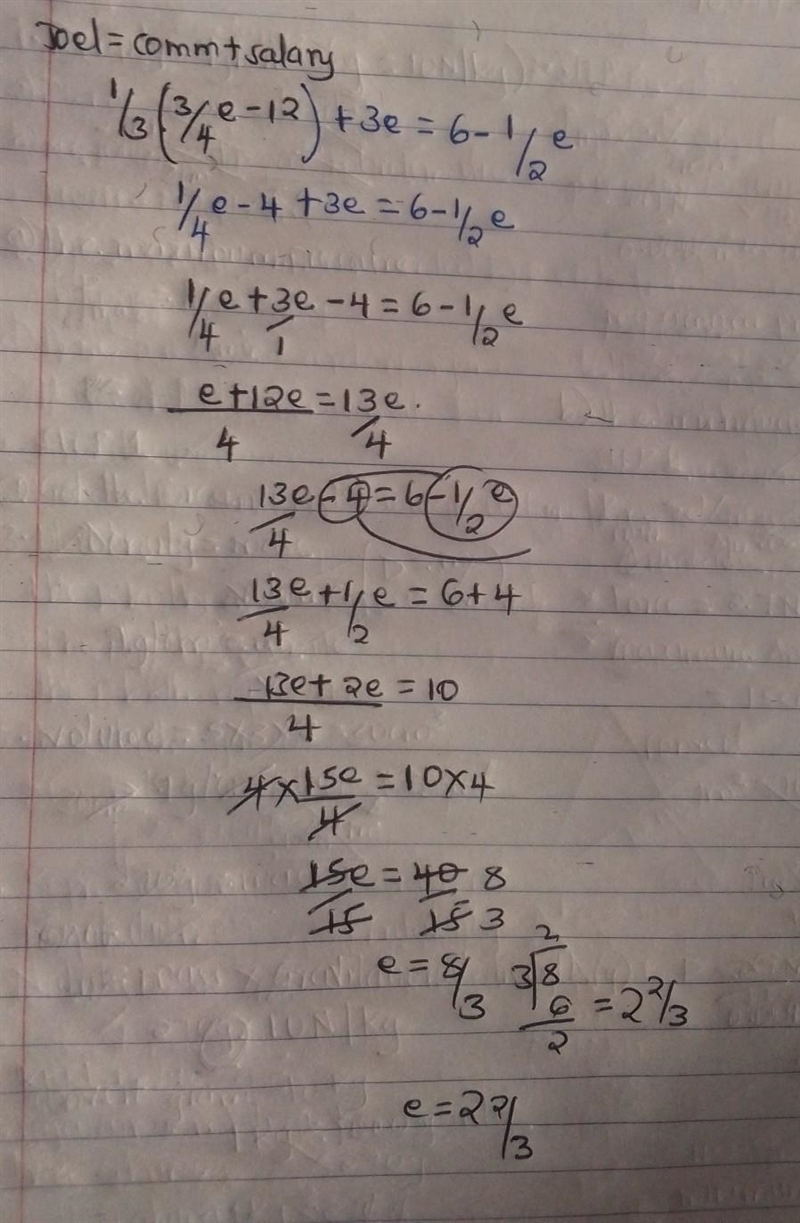 Joel = comm + salary
1/3 (3/4 e - 12) + 3e = 6 - 1/2 e
1/4 e - 4 + 3e = 6 - 1/2 e
1/4 e + 3e/1 - 4 = 6 - 1/2 e
e + 12e/4 = 13e/4.
13e/4 - 4 = 6 - 1/2 e
13e/4 + 1/2 e = 6 + 4
13e + 2e/4 = 10
4 × 15e/4 = 10 × 4
15e/15 = 40/15 8/3
e = 8/3 3√8 2 6 2 = 2 2/3
e = 2 2/3